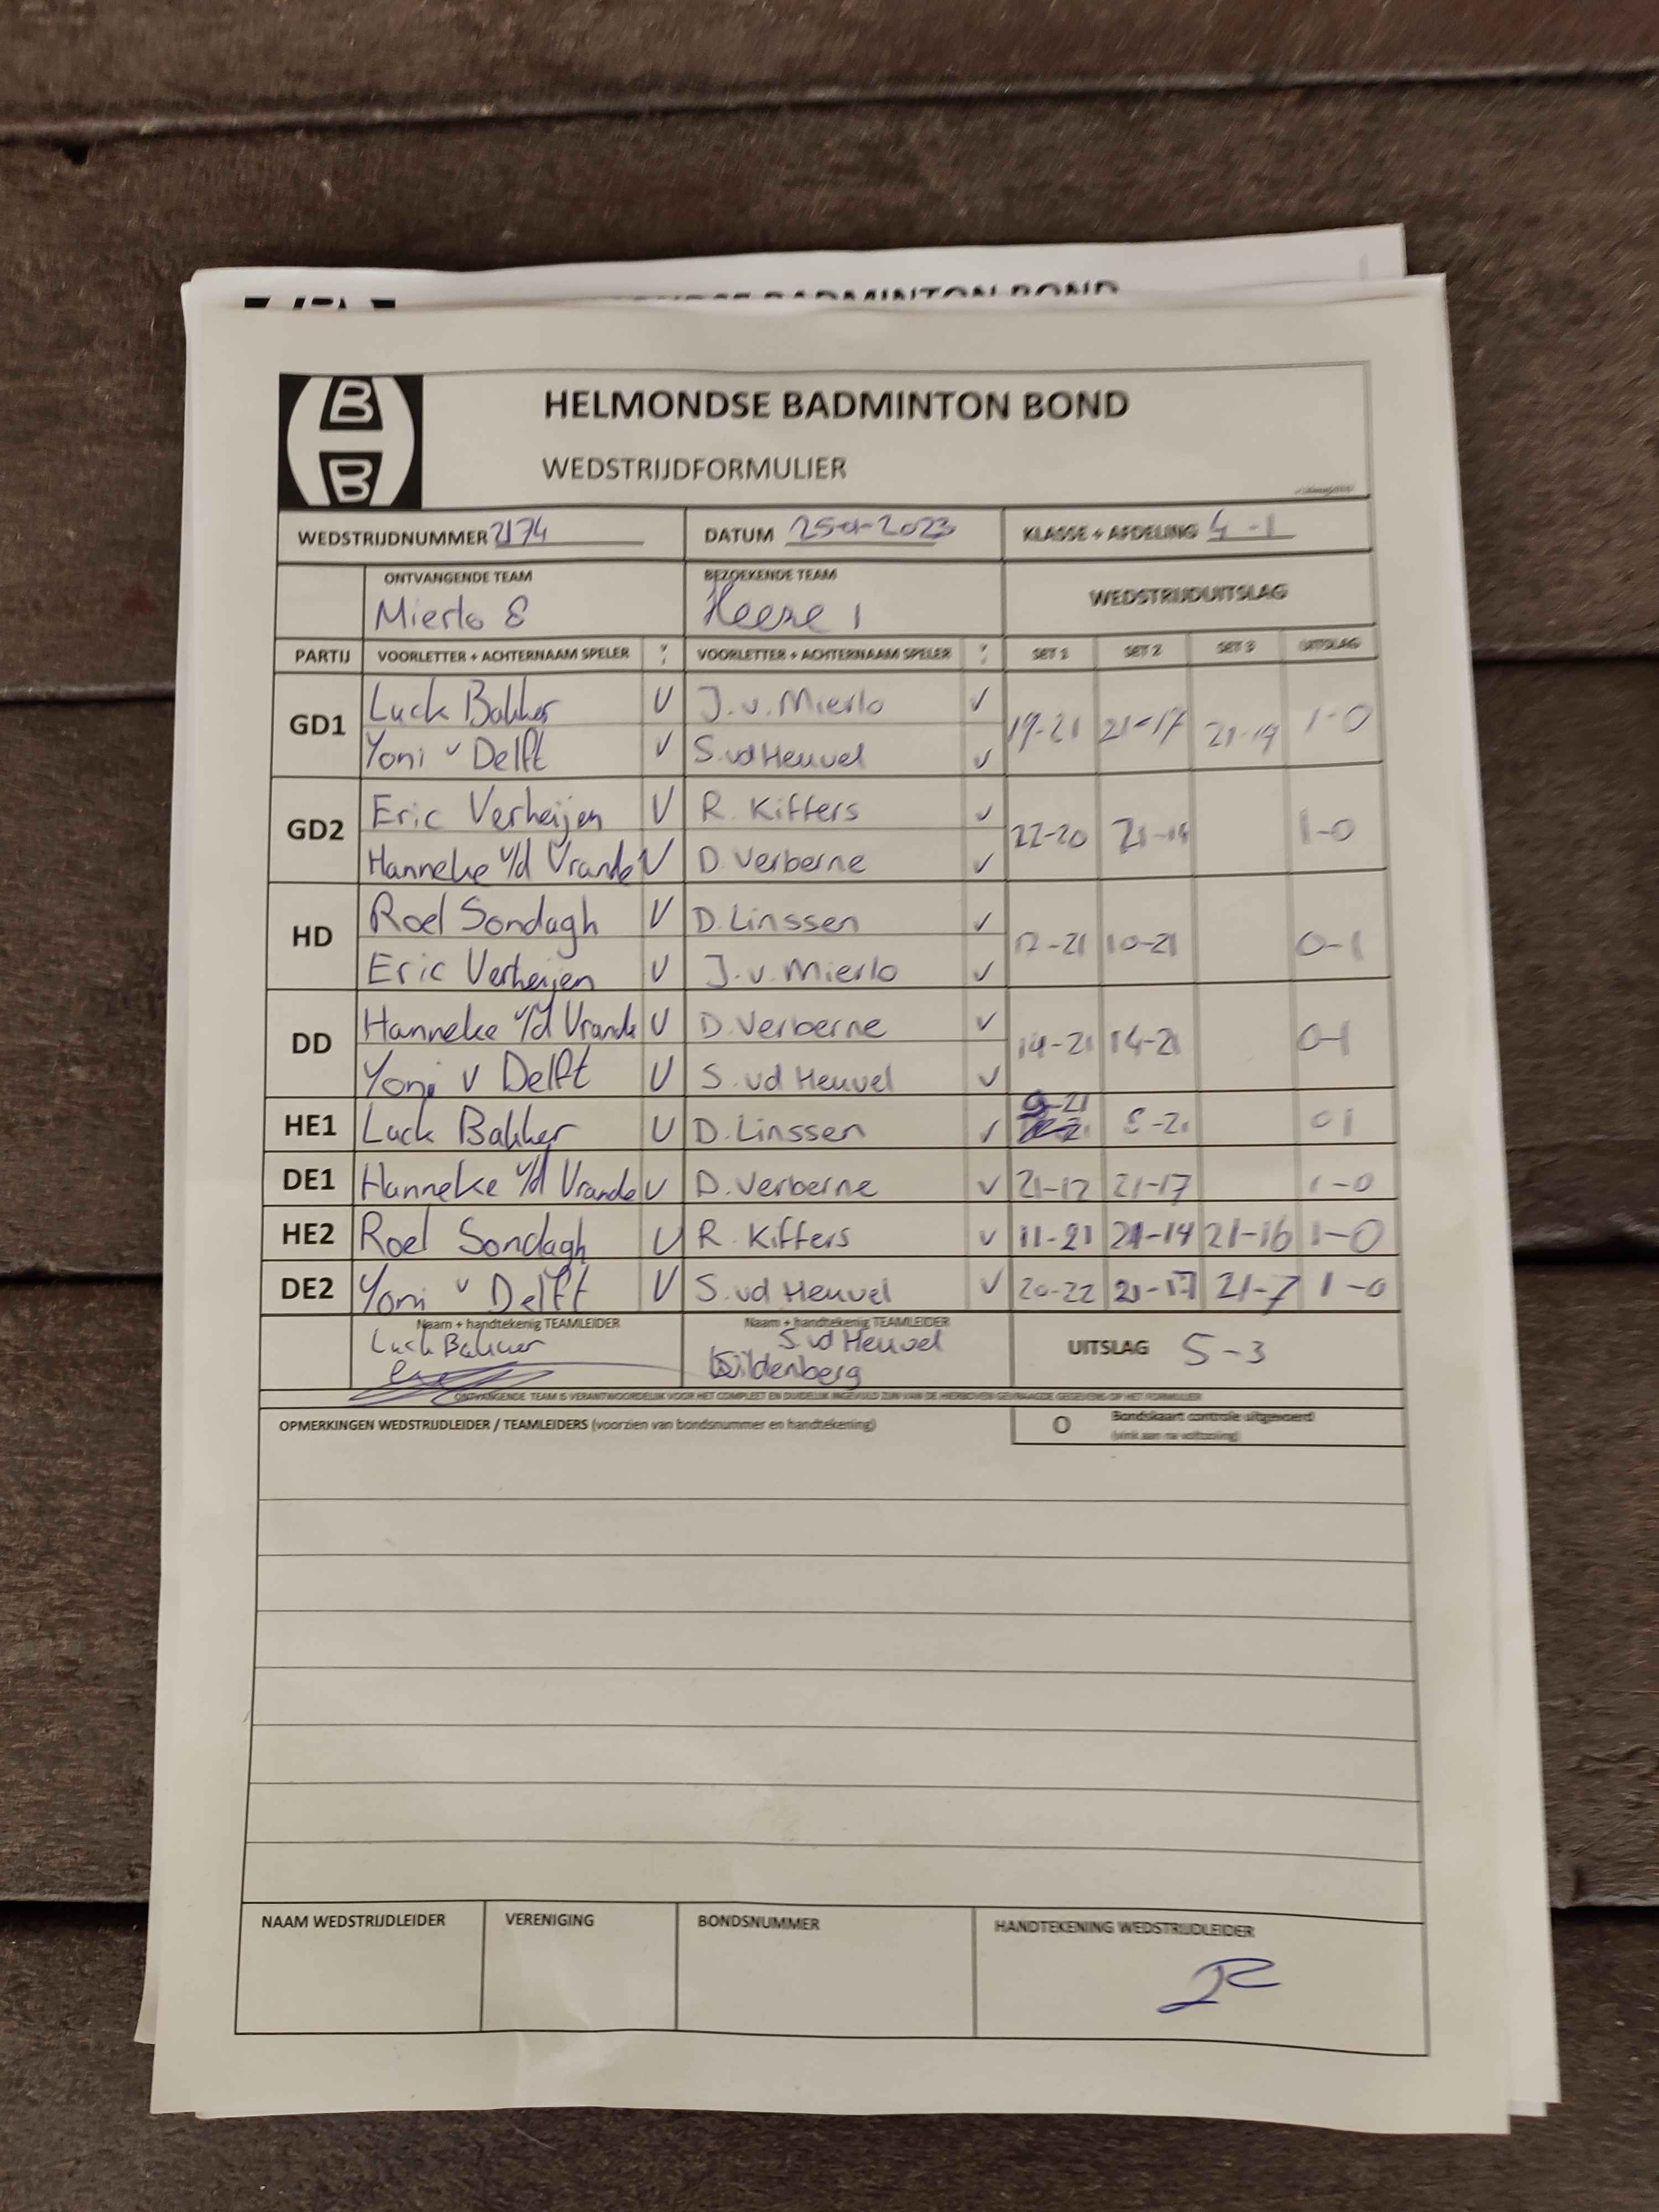 HELMONDSE BADMINTON BOND
WEDSTRIJDFORMULIER
WEDSTRIJDNUMMER 2174 DATUM 25-01-2023 KLASSE + AFDELING 4-1
ONTVANGENDE TEAM BEZOEKENDE TEAM WEDSTRIJDUITSLAG
Mierlo 8 Heeze 1
PARTIJ VOORLETTER + ACHTERNAAM SPELER VOORLETTER + ACHTERNAAM SPELER SET 1 SET 2 SET 3 UITSLAG
GD1 Luck Bakker V J. v. Mierlo ✓ 19-21 21-17 21-19 1-0
Yoni v Delft V S. vd Heuvel ✓
GD2 Eric Verheijen V R. Kiffers ✓ 22-20 21- 1-0
Hanneke v/d Vrande V D. Verberne ✓
HD Roel Sondagh V D. Linssen ✓ 17-21 10-21 0-1
Eric Verheijen V J. v. Mierlo ✓
DD Hanneke v/d Vrande V D. Verberne ✓ 14-21 14-21 0-1
Yoni v Delft V S. vd Heuvel ✓
HE1 Luck Bakker V D. Linssen ✓ 9-21 8-21 0 1
DE1 Hanneke v/d Vrande V D. Verberne ✓ 21-12 21-17 1-0
HE2 Roel Sondagh V R. Kiffers ✓ 11-21 21-14 21-16 1-0
DE2 Yoni v Delft V S. vd Heuvel ✓ 20-22 21-17 21-7 1-0
Naam + handtekenig TEAMLEIDER Naam + handtekenig TEAMLEIDER
Luck Bakker S. vd Heuvel UITSLAG 5-3
ONTVANGENDE TEAM IS VERANTWOORDELIJK VOOR HET COMPLEET EN DUIDELIJK INGEVULD ZIJN VAN DE HIERBOVEN GEVRAAGDE GEGEVENS OP HET FORMULIER
OPMERKINGEN WEDSTRIJDLEIDER / TEAMLEIDERS (voorzien van bondsnummer en handtekening) O Bondskaart controle uitgevoerd
(vink aan na voltooiing)
NAAM WEDSTRIJDLEIDER VERENIGING BONDSNUMMER HANDTEKENING WEDSTRIJDLEIDER